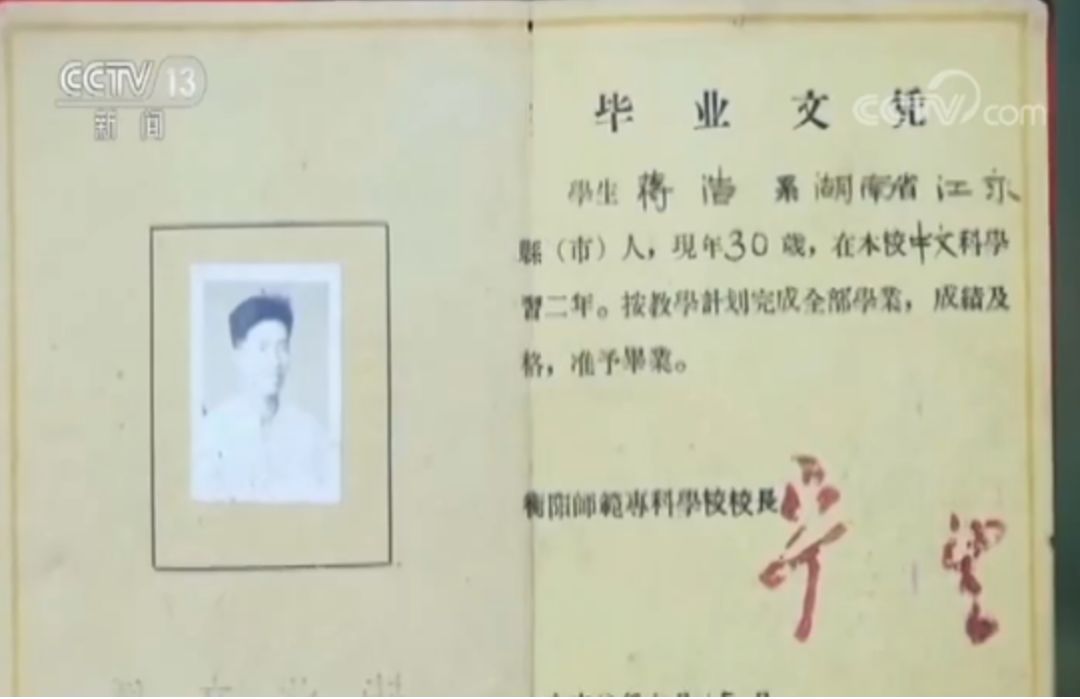 CCTV 13
新闻
CCTV.com
毕业文凭
學生 蒋浩 系 湖南省 江永
縣（市）人，現年30歲，在本校中文科學
習二年。按教學計划完成全部學業，成績及
格，准予畢業。
衡陽師範專科學校校長